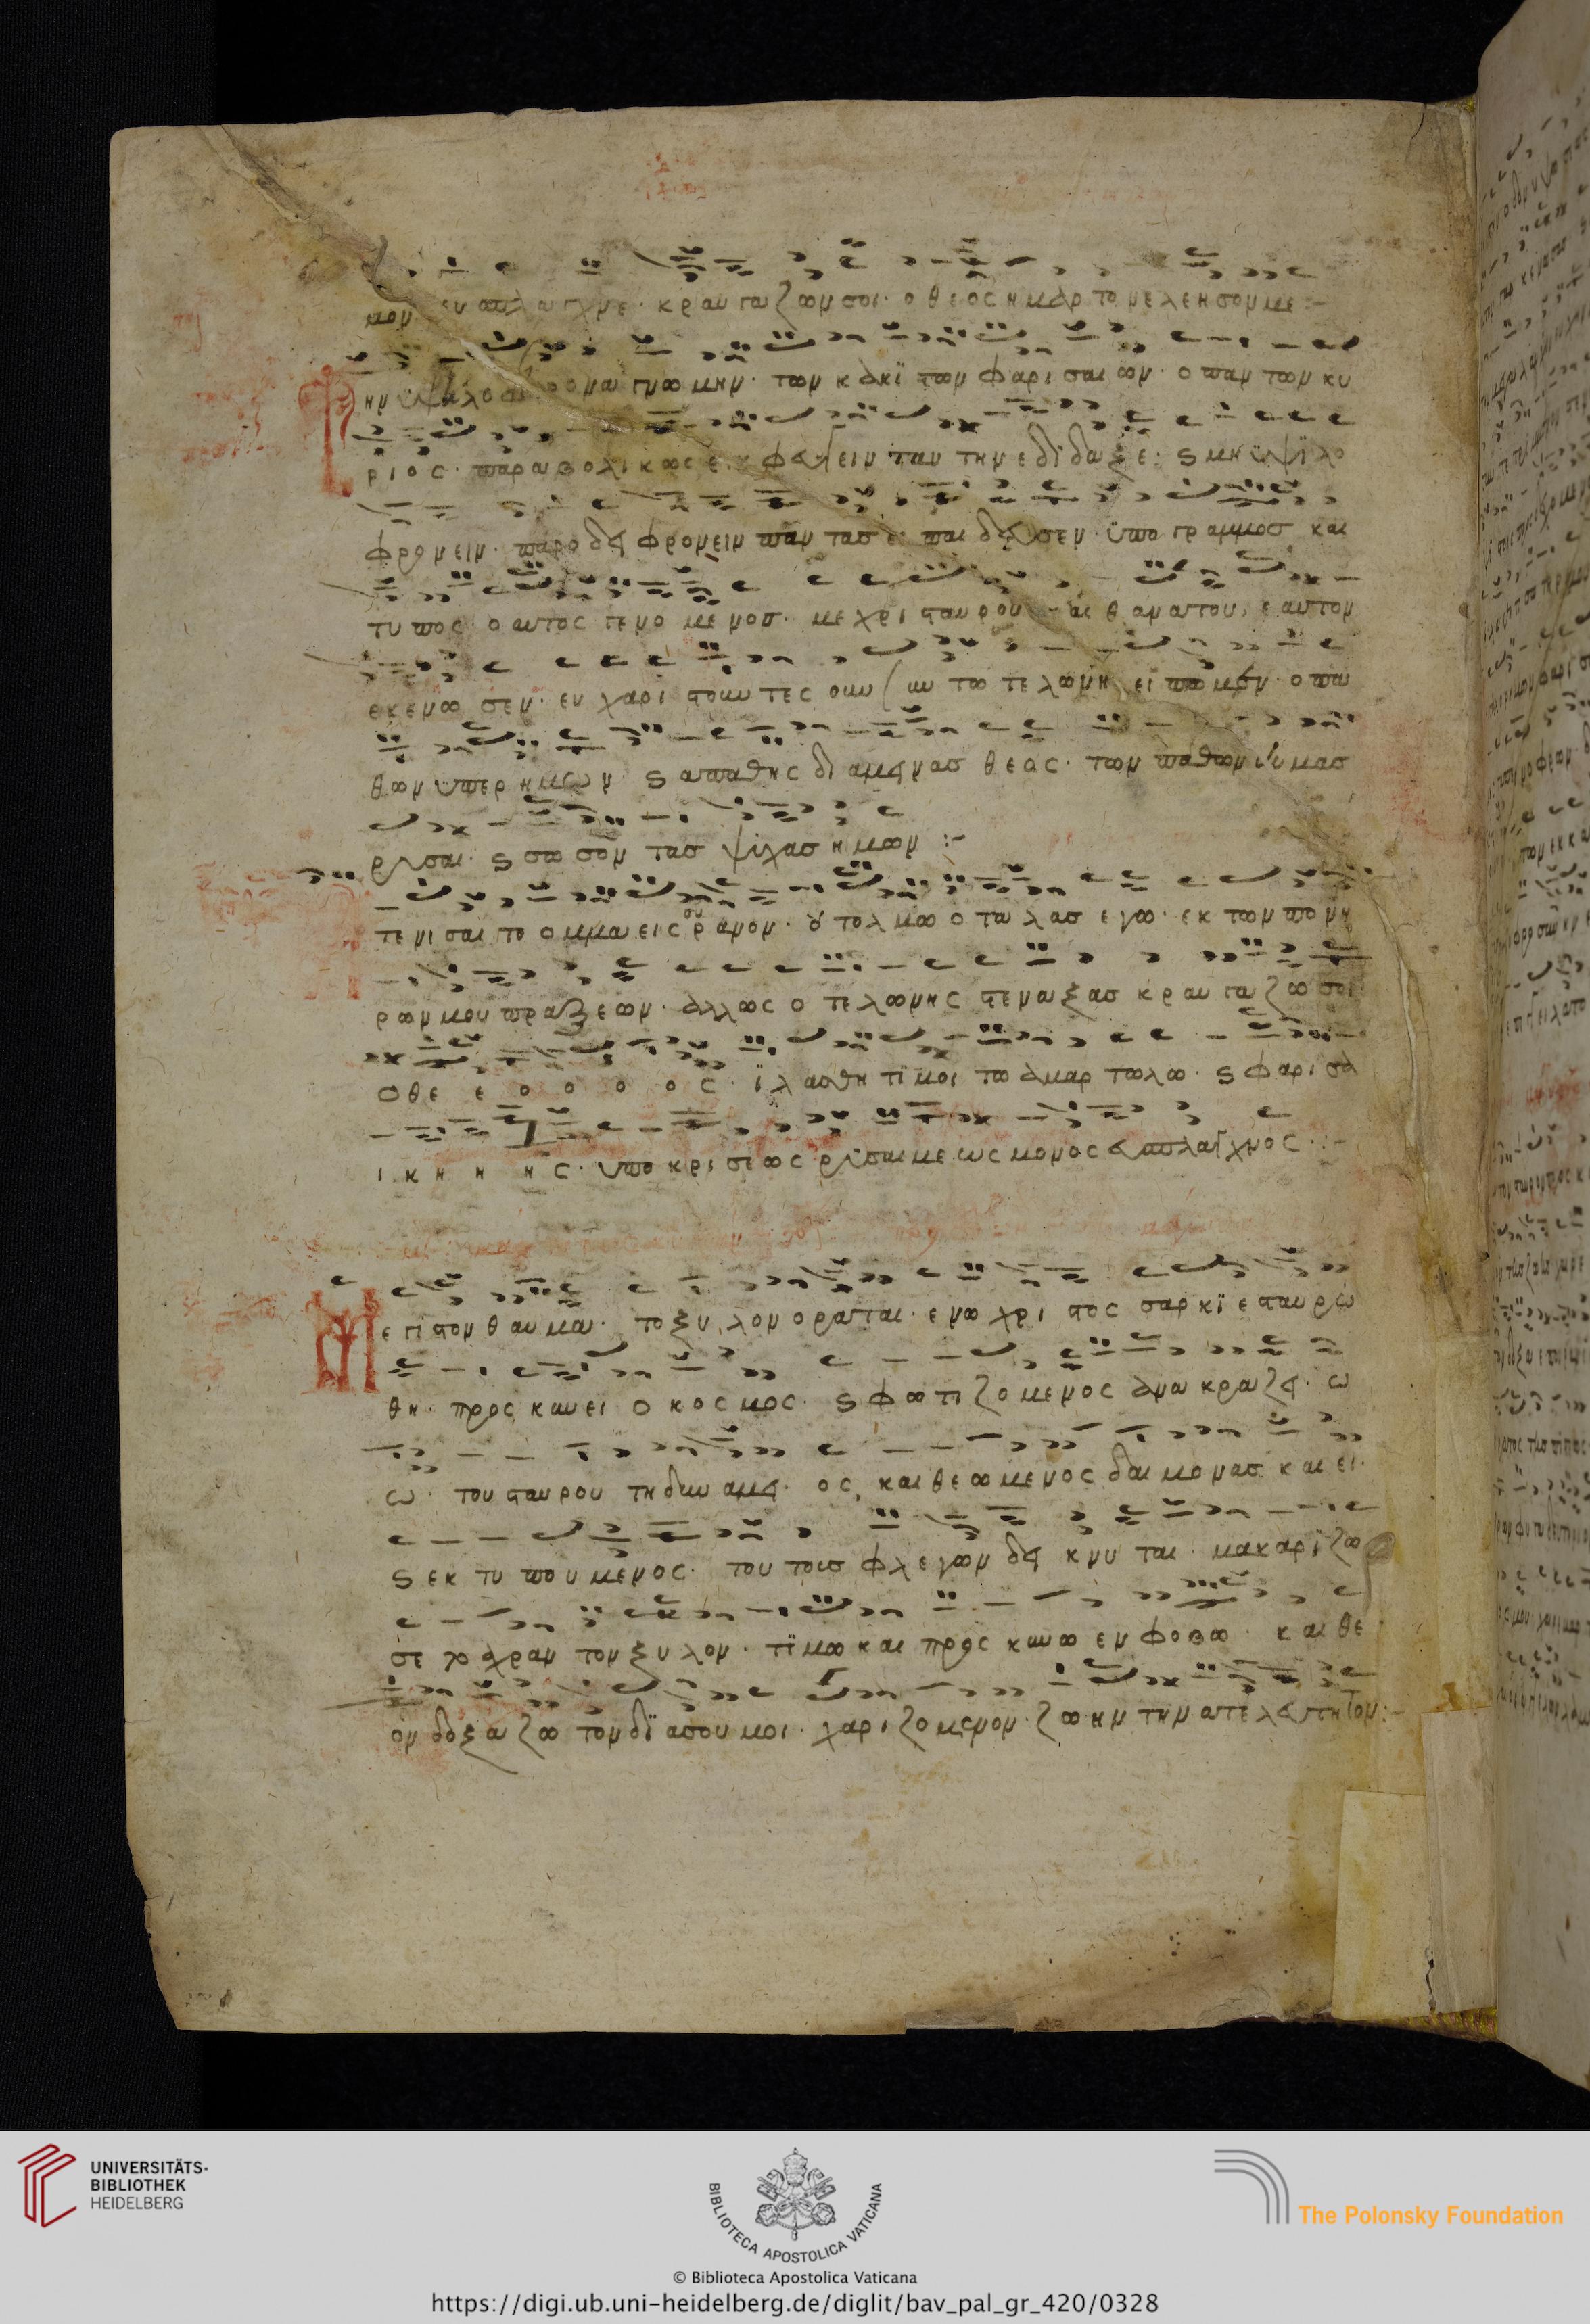 μον ευσπλαγχνε · κραυγαζων σοι · ο θεος ημαρτον ελεησον με :-
την υψηλοφρονα γνωμην · των κακι στων φαρισαιων · ο παντων κυ
ριος · παραβολικως εκφευγειν παντην εδιδαξε · ϛ μη υψηλο
φρονειν · παρ ο δει φρονειν παντασ ε παιδευσεν · υπογραμμοσ και
τυπος · ο αυτος γενομενοσ · μεχρι σταυρου και θανατου · εαυτον
εκενωσεν · ευχαριστουντες ουν συν τω τελωνη ειπωμεν · ο πα
θων υπερ ημων ϛ απαθης διαμεινασ θεος · των παθων ημασ
ρυσαι · ϛ σωσον τασ ψυχασ ημων :-
τενισαι το ομμα εις ουρανον · ου τολμω ο ταλασ εγω · εκ των πονη
ρων μου πραξεων · αλλ ως ο τελωνης στεναξασ κραυγαζω σοι
Ο θε ε ο ο ο ος · ϊλασθητϊ μοι τω αμαρτωλω · ϛ φαρισα
ι κ η η ης · υποκρισεως ρυσαι με ως μονος ευσπλαγχνος :-
Μεγιστον θαυμα · το ξυλον οραται · εν ω χριστος σαρκϊ εσταυρω
θη · προσκυνει ο κοσμος · ϛ φωτιζομενος αμα κραζει · ω
ω · του σταυρου τη δυναμει · ος και θεωμενος δαιμονασ καιει ·
ϛ εκτυπουμενος · τουτοισ φλεγων δεικνυται · μακαριζω
σε το αχραντον ξυλον · τϊμω και προσκυνω εν φοβω · και θε
ον δοξαζω τον δϊα σου μοι · χαριζομενον · ζωην την ατελευτητον :-
UNIVERSITÄTS-
BIBLIOTHEK
HEIDELBERG
BIBLIOTECA APOSTOLICA VATICANA
The Polonsky Foundation
© Biblioteca Apostolica Vaticana
https://digi.ub.uni-heidelberg.de/diglit/bav_pal_gr_420/0328